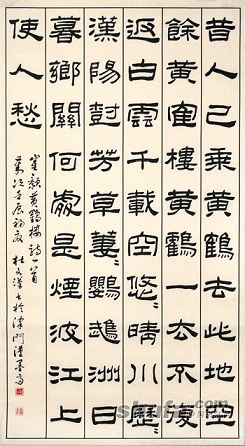 昔人已乘黄鶴去此地空
餘黄鶴樓黄鶴一去不復
返白雲千載空悠〻晴川歷〻
漢陽樹芳草萋〻鸚鵡洲日
暮鄉關何處是煙波江上
使人愁
崔顥黄鶴樓詩一首
歲次壬辰初夏 杜文 書於津門漢墨斋